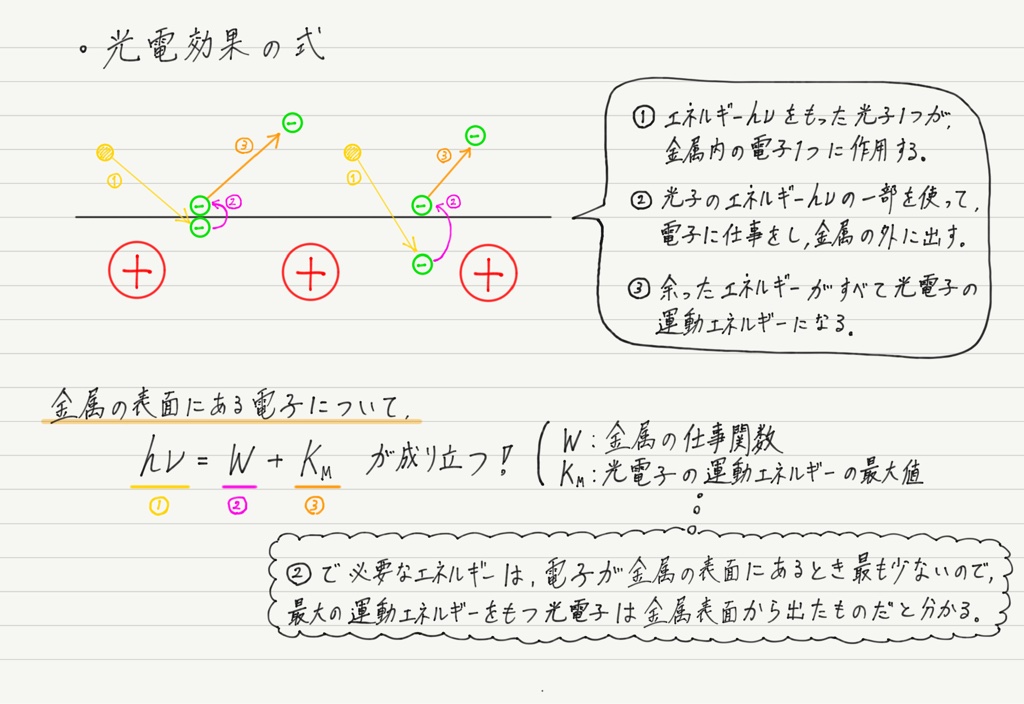 ・光電効果の式
① ③ ② ① ③ ②
− − − − − −
+ + +
① エネルギーhνをもった光子1つが,
金属内の電子1つに作用する。
② 光子のエネルギーhνの一部を使って,
電子に仕事をし,金属の外に出す。
③ 余ったエネルギーがすべて光電子の
運動エネルギーになる。
金属の表面にある電子について,
hν = W + KM が成り立つ!
① ② ③
W:金属の仕事関数
KM:光電子の運動エネルギーの最大値
②で必要なエネルギーは,電子が金属の表面にあるとき最も少ないので,
最大の運動エネルギーをもつ光電子は金属表面から出たものだと分かる。